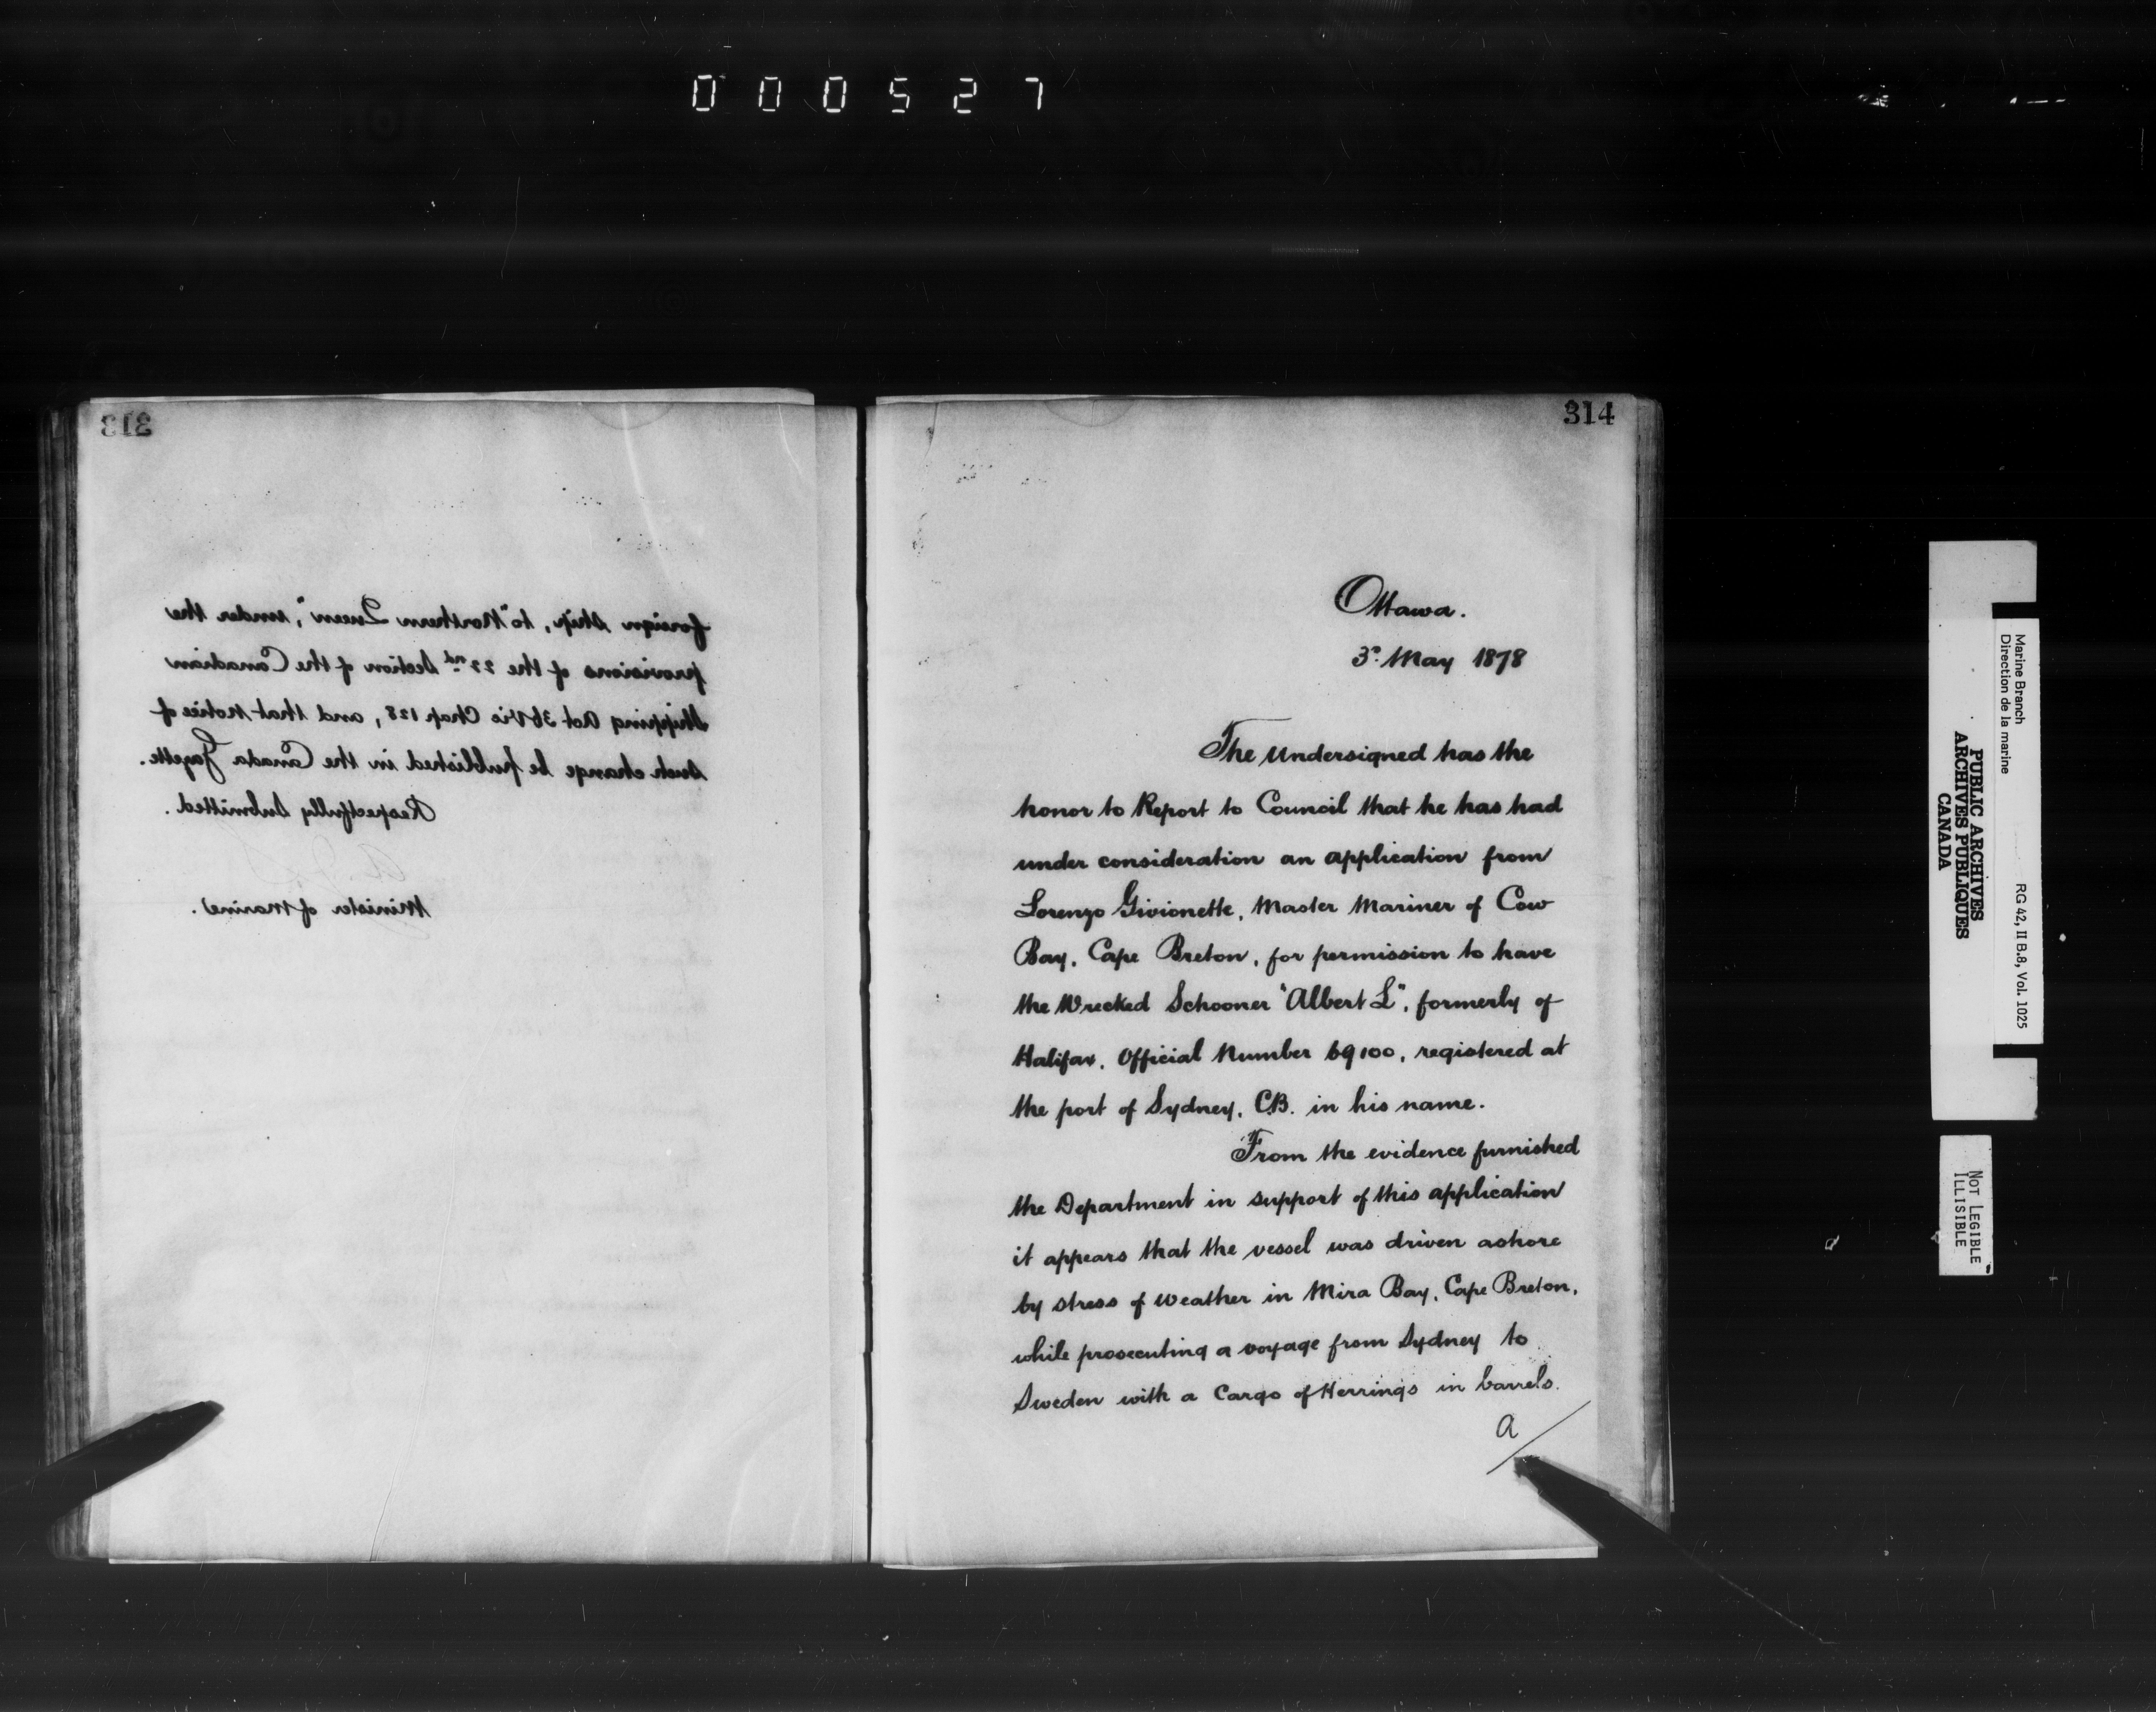 000527
313
foreign Ship, to "Northern Queen", under the
provisions of the 22nd Section of the Canadian
Shipping Act 36 Vic Chap 128, and that Notice of
Such change be published in the Canada Gazette.
Respectfully Submitted.
Minister of Marine.
314
Ottawa.
3rd May 1878
The Undersigned has the
honor to Report to Council that he has had
under consideration an application from
Lorenzo Givionette, Master Mariner of Cow
Bay, Cape Breton, for permission to have
the Wrecked Schooner "Albert L", formerly of
Halifax, Official Number 69100, registered at
the port of Sydney, C.B. in his name.
From the evidence furnished
the Department in support of this application
it appears that the vessel was driven ashore
by stress of weather in Mira Bay, Cape Breton,
while prosecuting a voyage from Sydney to
Sweden with a Cargo of Herrings in barrels.
A
Marine Branch
Direction de la marine
RG 42, II B.8, Vol. 1025
PUBLIC ARCHIVES
ARCHIVES PUBLIQUES
CANADA
NOT LEGIBLE
ILLISIBLE